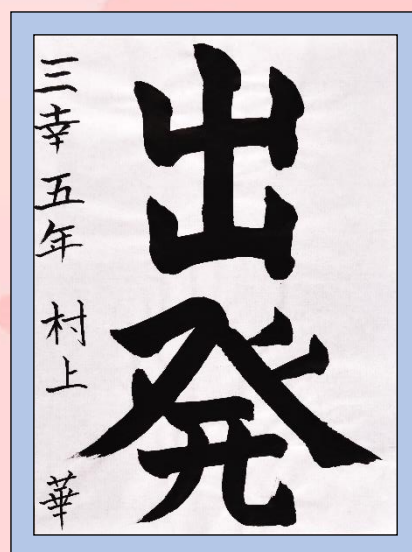 出発
三幸 五年 村上 華